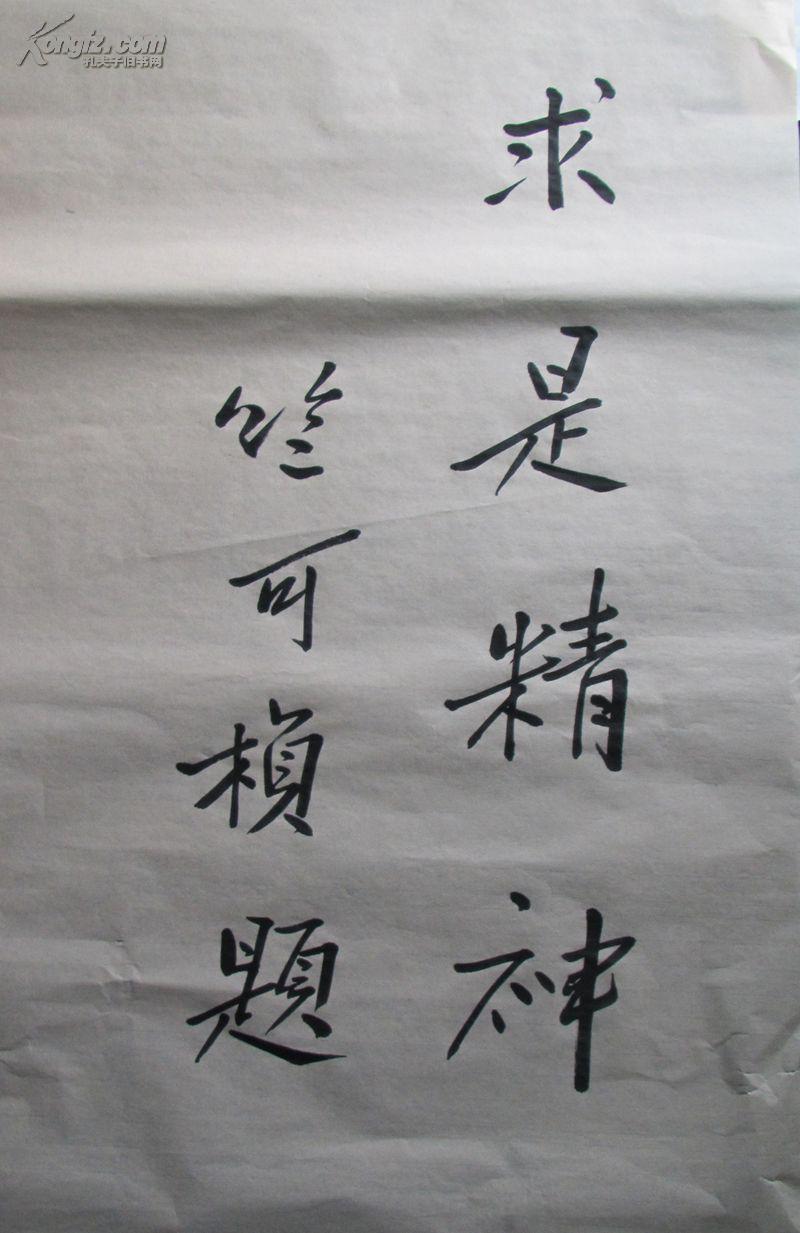 求是精神
竺可楨題
Kongfz.com
孔夫子旧书网